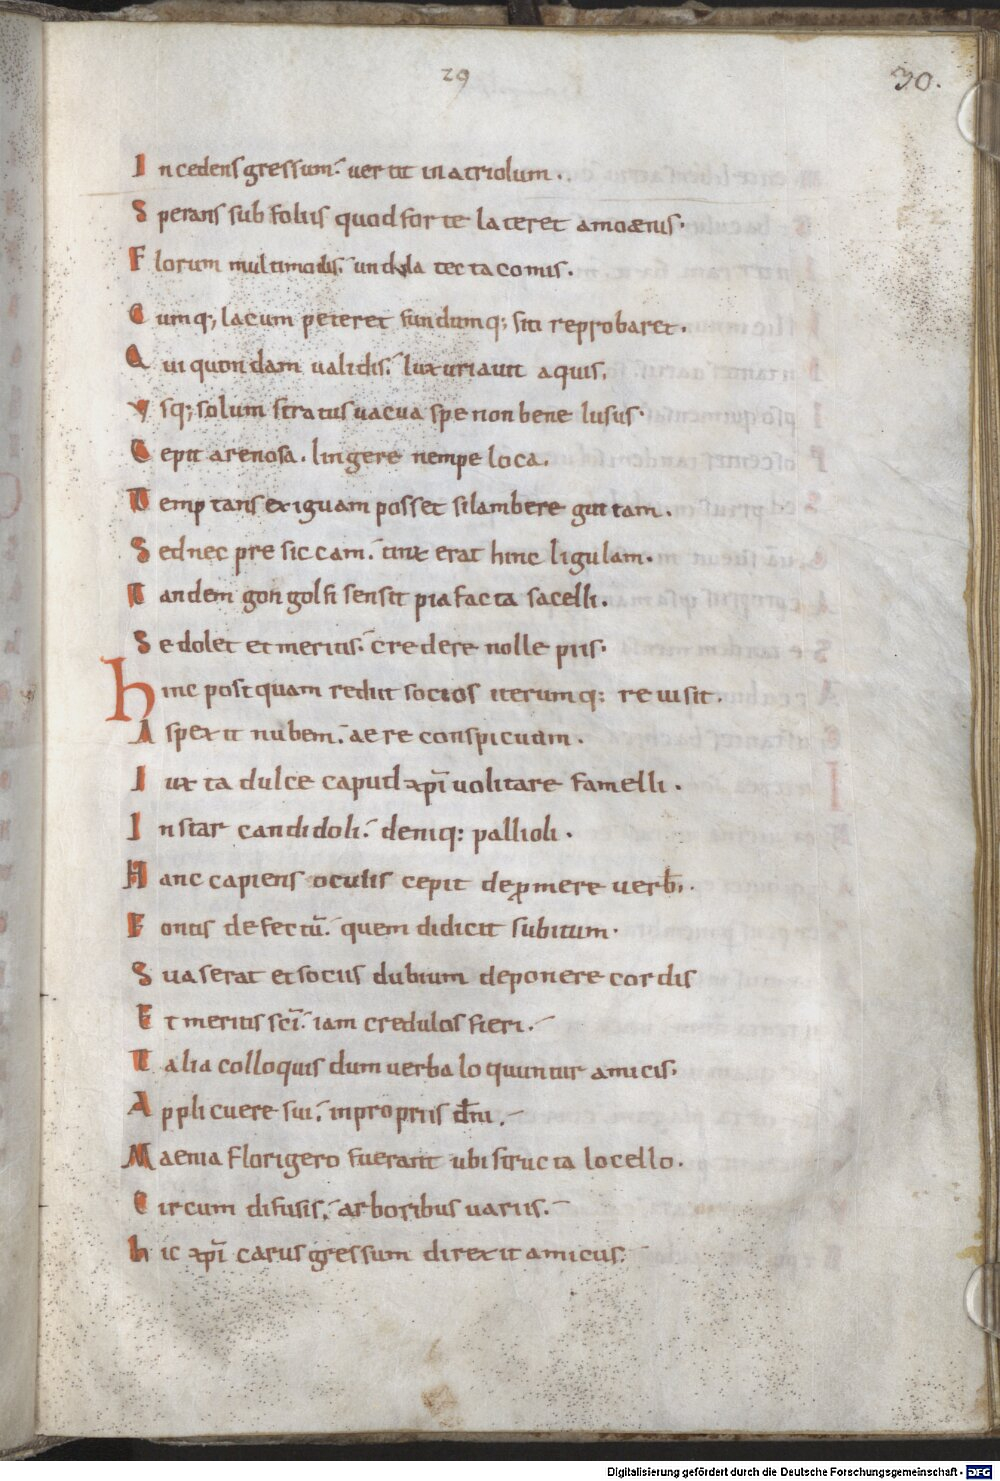 29
30.
Incedens gressum. vertit in atriolum.
Sperans sub foliis quod forte lateret amoænis.
Florum multimodis. undula tecta comis.
Cumq; lacum peteret fundumq; siti reprobaret.
Qui quondam validis. luxuriavit aquis.
Vsq; solum stratus vacua spe non bene lusus.
Cepit arenosa. lingere nempe loca.
Temptans exiguam posset si lambere guttam.
Sed nec pre siccam. tinxerat hinc ligulam.
Tandem gongolfi sensit pia facta sacelli.
Se dolet et meritis. credere nolle piis.
hinc postquam rediit socios iterumq: revisit.
Aspexit nubem. aere conspicuam.
Iuxta dulce caput xpi volitare famelli.
Instar candidoli. deniq: pallioli.
Hanc capiens oculis cepit depromere verbis.
Fontis defectū. quem didicit subitum.
Suaserat et sociis dubium deponere cordis
Et meritis sci. iam credulos fieri.
Talia colloquiis dum verba loquuntur amicis.
Applicuere sui. in propriis dni.
Maenia florigero fuerant ubi structa locello.
Circum difusis. arboribus variis.
hic xpi carus gressum direxit amicus.
Digitalisierung gefördert durch die Deutsche Forschungsgemeinschaft - DFG